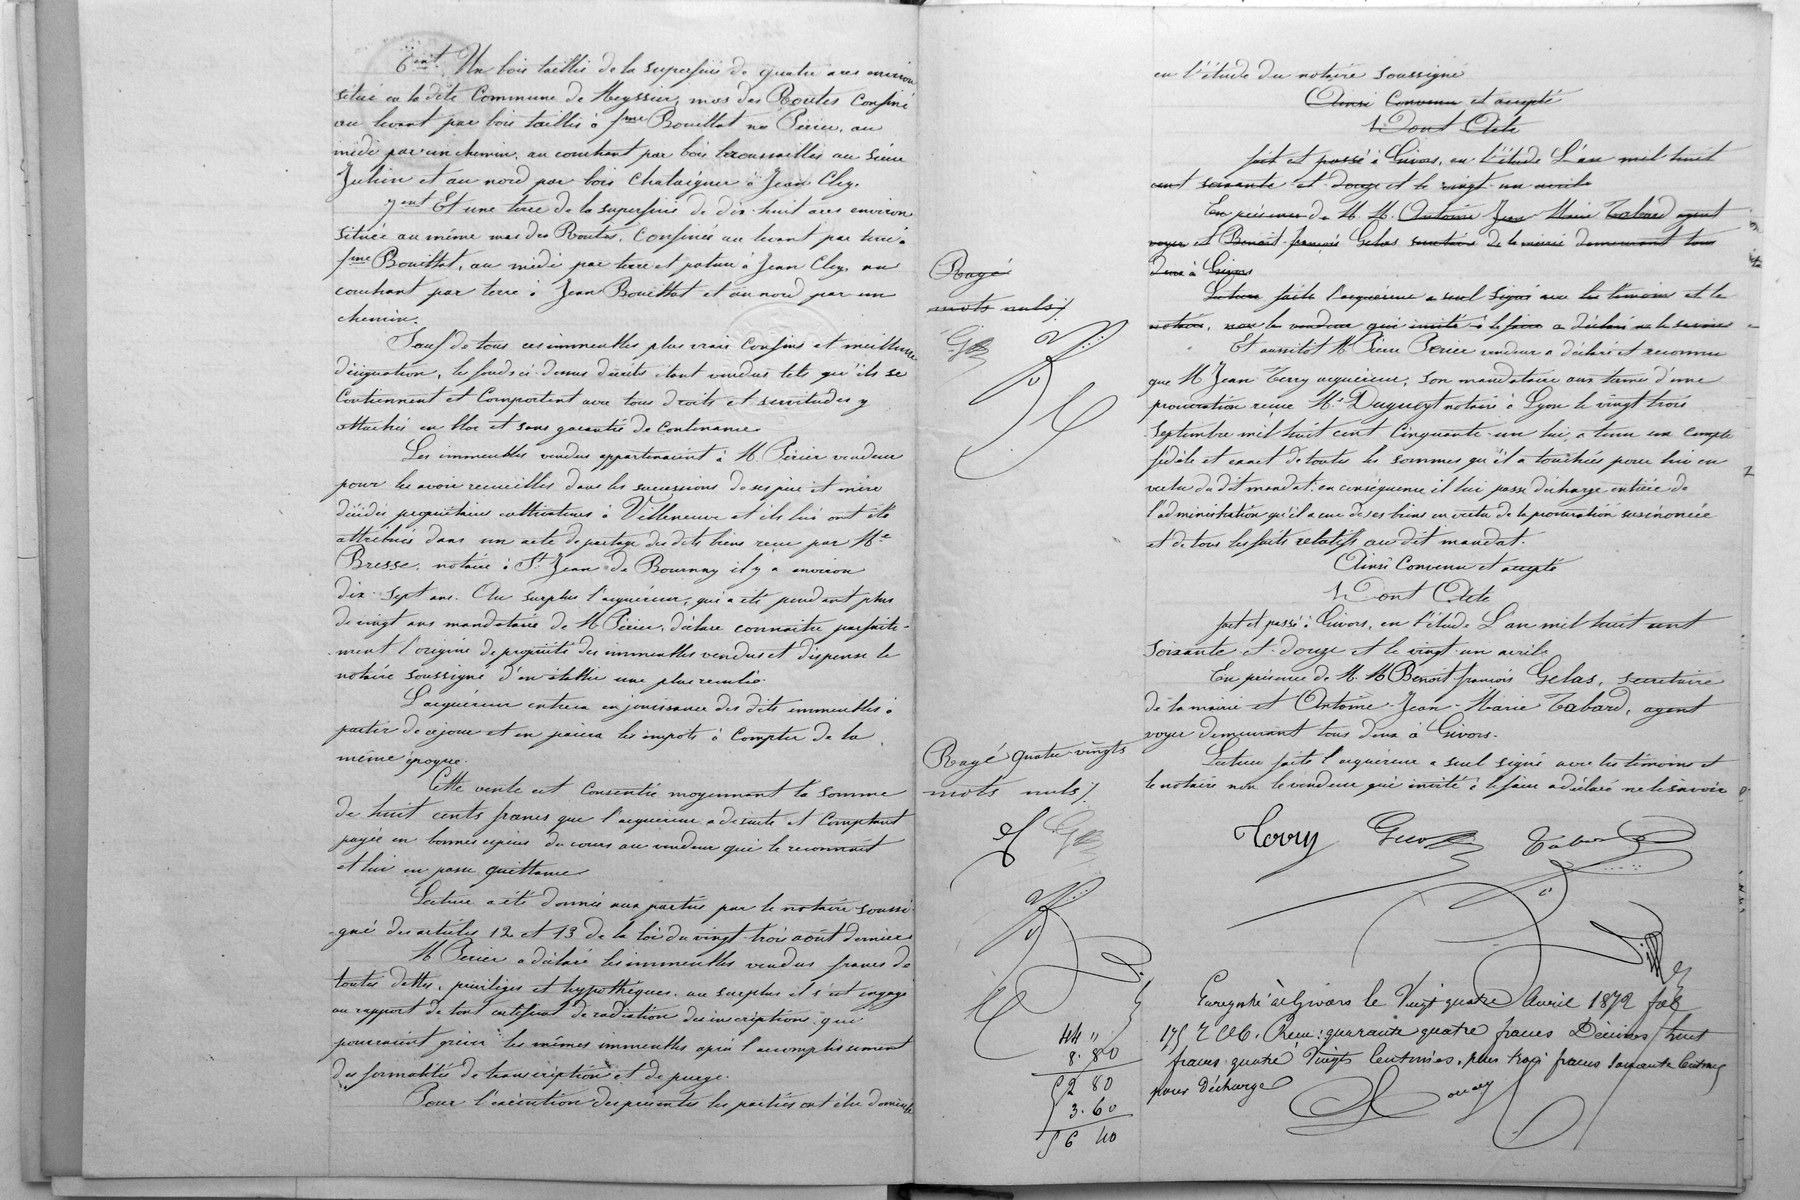 6ent Un bois taillis de la superficie de quatre ares environ
situé en la dite Commune de Meyssiez, mas des Routes confiné
au levant par bois taillis à fme Bouillat née Périer, au
midi par un chemin, au couchant par bois broussailles au sieur
Jullien et au nord par bois chataigner à Jean Cley.
7ent Et une terre de la superficie de dix-huit ares environ
située au même mas des Routes, confinée au levant par terre à
fme Bouillat, au midi par terre et pature à Jean Cley, au
couchant par terre à Jean Bouillat et au nord par un
chemin.
Sauf de tous ces immeubles plus vrais confins et meilleure
désignation, les fonds ci-dessus décrits étant vendus tels qu'ils se
Contiennent et Comportent avec tous droits et servitudes y
attachés en bloc et sans garantie de Contenance
Les immeubles vendus appartenaient à M. Périer vendeur
pour les avoir recueillis dans les successions de ses père et mère
décédés propriétaires cultivateurs à Villeneuve et ils lui ont été
attribués dans un acte de partage des dits biens reçu par Me
Bresse, notaire à St Jean de Bournay il y a environ
dix-sept ans. Au surplus l'acquéreur, qui a été pendant plus
de vingt ans mandataire de M. Périer, déclare connaitre parfaite-
-ment l'origine de propriété des immeubles vendus et dispense le
notaire soussigné d'en établir une plus remlie.
L'acquéreur entrera en jouissance des dits immeubles à
partir de ce jour et en paiera les impots à Compter de la
même époque.
Cette vente est Consentie moyennant la somme
de huit cents francs que l'acquéreur a de suite et Comptant
payée en bonnes espèces de cours au vendeur qui le reconnait
et lui en passe quittance
Lecture a été donnée aux parties par le notaire soussi-
-gné des articles 12 et 13 de la loi du vingt-trois août dernier
M. Périer a déclaré les immeubles vendus francs de
toutes dettes, privilèges et hypothèques, au surplus il s'est engagé
au rapport de tout certificat de radiation des inscriptions qui
pourraient grever les mêmes immeubles après l'accomplissement
des formalités de transcription et de purge.
Pour l'exécution des présentes les parties ont élu domicile
en l'étude du notaire soussigné
Ainsi Convenu et accepté
Dont Acte
fait et passé à Givors, en l'étude L'an mil huit
cent soixante et douze et le vingt-un avril
En présence de M. M. Antoine Jean-Marie Tabard agent
voyer et Benoit-françois Gelas secrétaire de la mairie demeurant tous
deux à Givors
Lecture faite l'acquéreur a seul signé avec les témoins et le
notaire, non le vendeur qui invité à le faire a déclaré ne le savoir
Rayé
mots nuls
Et aussitot M. Pierre Perier vendeur a déclaré et reconnu
que M. Jean Terry acquéreur, son mandataire aux termes d'une
procuration reçue Me Dugueyt notaire à Lyon le vingt trois
septembre mil huit cent Cinquante-un lui a tenu un compte
fidèle et exact de toutes les sommes qu'il a touchées pour lui en
vertu du dit mandat, en conséquence il lui passe décharge entière de
l'administration qu'il a eue de ses biens en vertu de la procuration susénoncée
et de tous les faits relatifs au dit mandat.
Ainsi Convenu et accepté
Dont Acte
fait et passé à Givors, en l'étude L'an mil huit cent
soixante et-douze et le vingt-un avril
En présence de M. M. Benoit-françois Gelas, secrétaire
de la mairie et Antoine-Jean-Marie Tabard, agent
voyer demeurant tous deux à Givors.
Lecture faite l'acquéreur a seul signé avec les témoins et
le notaire non le vendeur qui invité à le faire a déclaré ne le savoir
Rayé quatre-vingts
mots nuls
Terry Gelas Tabard
Enregistré à Givors le Vingt quatre Avril 1872 fol
175 R. C 6. Reçu: quarante quatre francs Décimes huit
francs quatre Vingts Centimes, plus trois francs soixante Centimes
pour Décharge
44 "
8. 80
52 80
3. 60
56 40